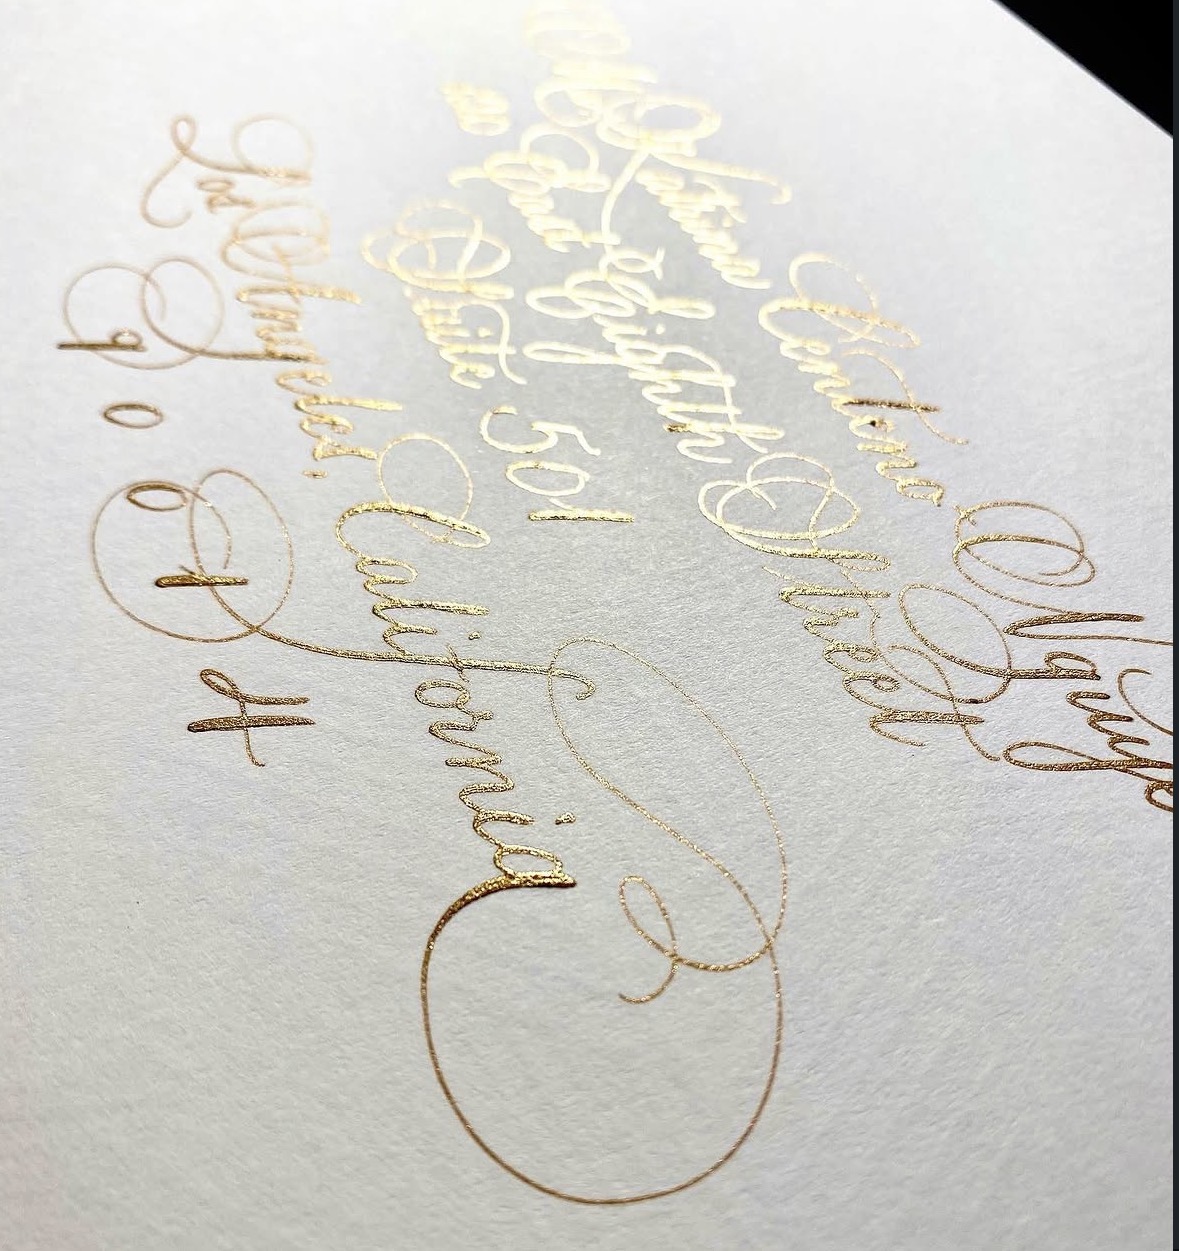 Katrina Centeno Nguye
East Eighth Street
Suite 501
Los Angeles, California
90014